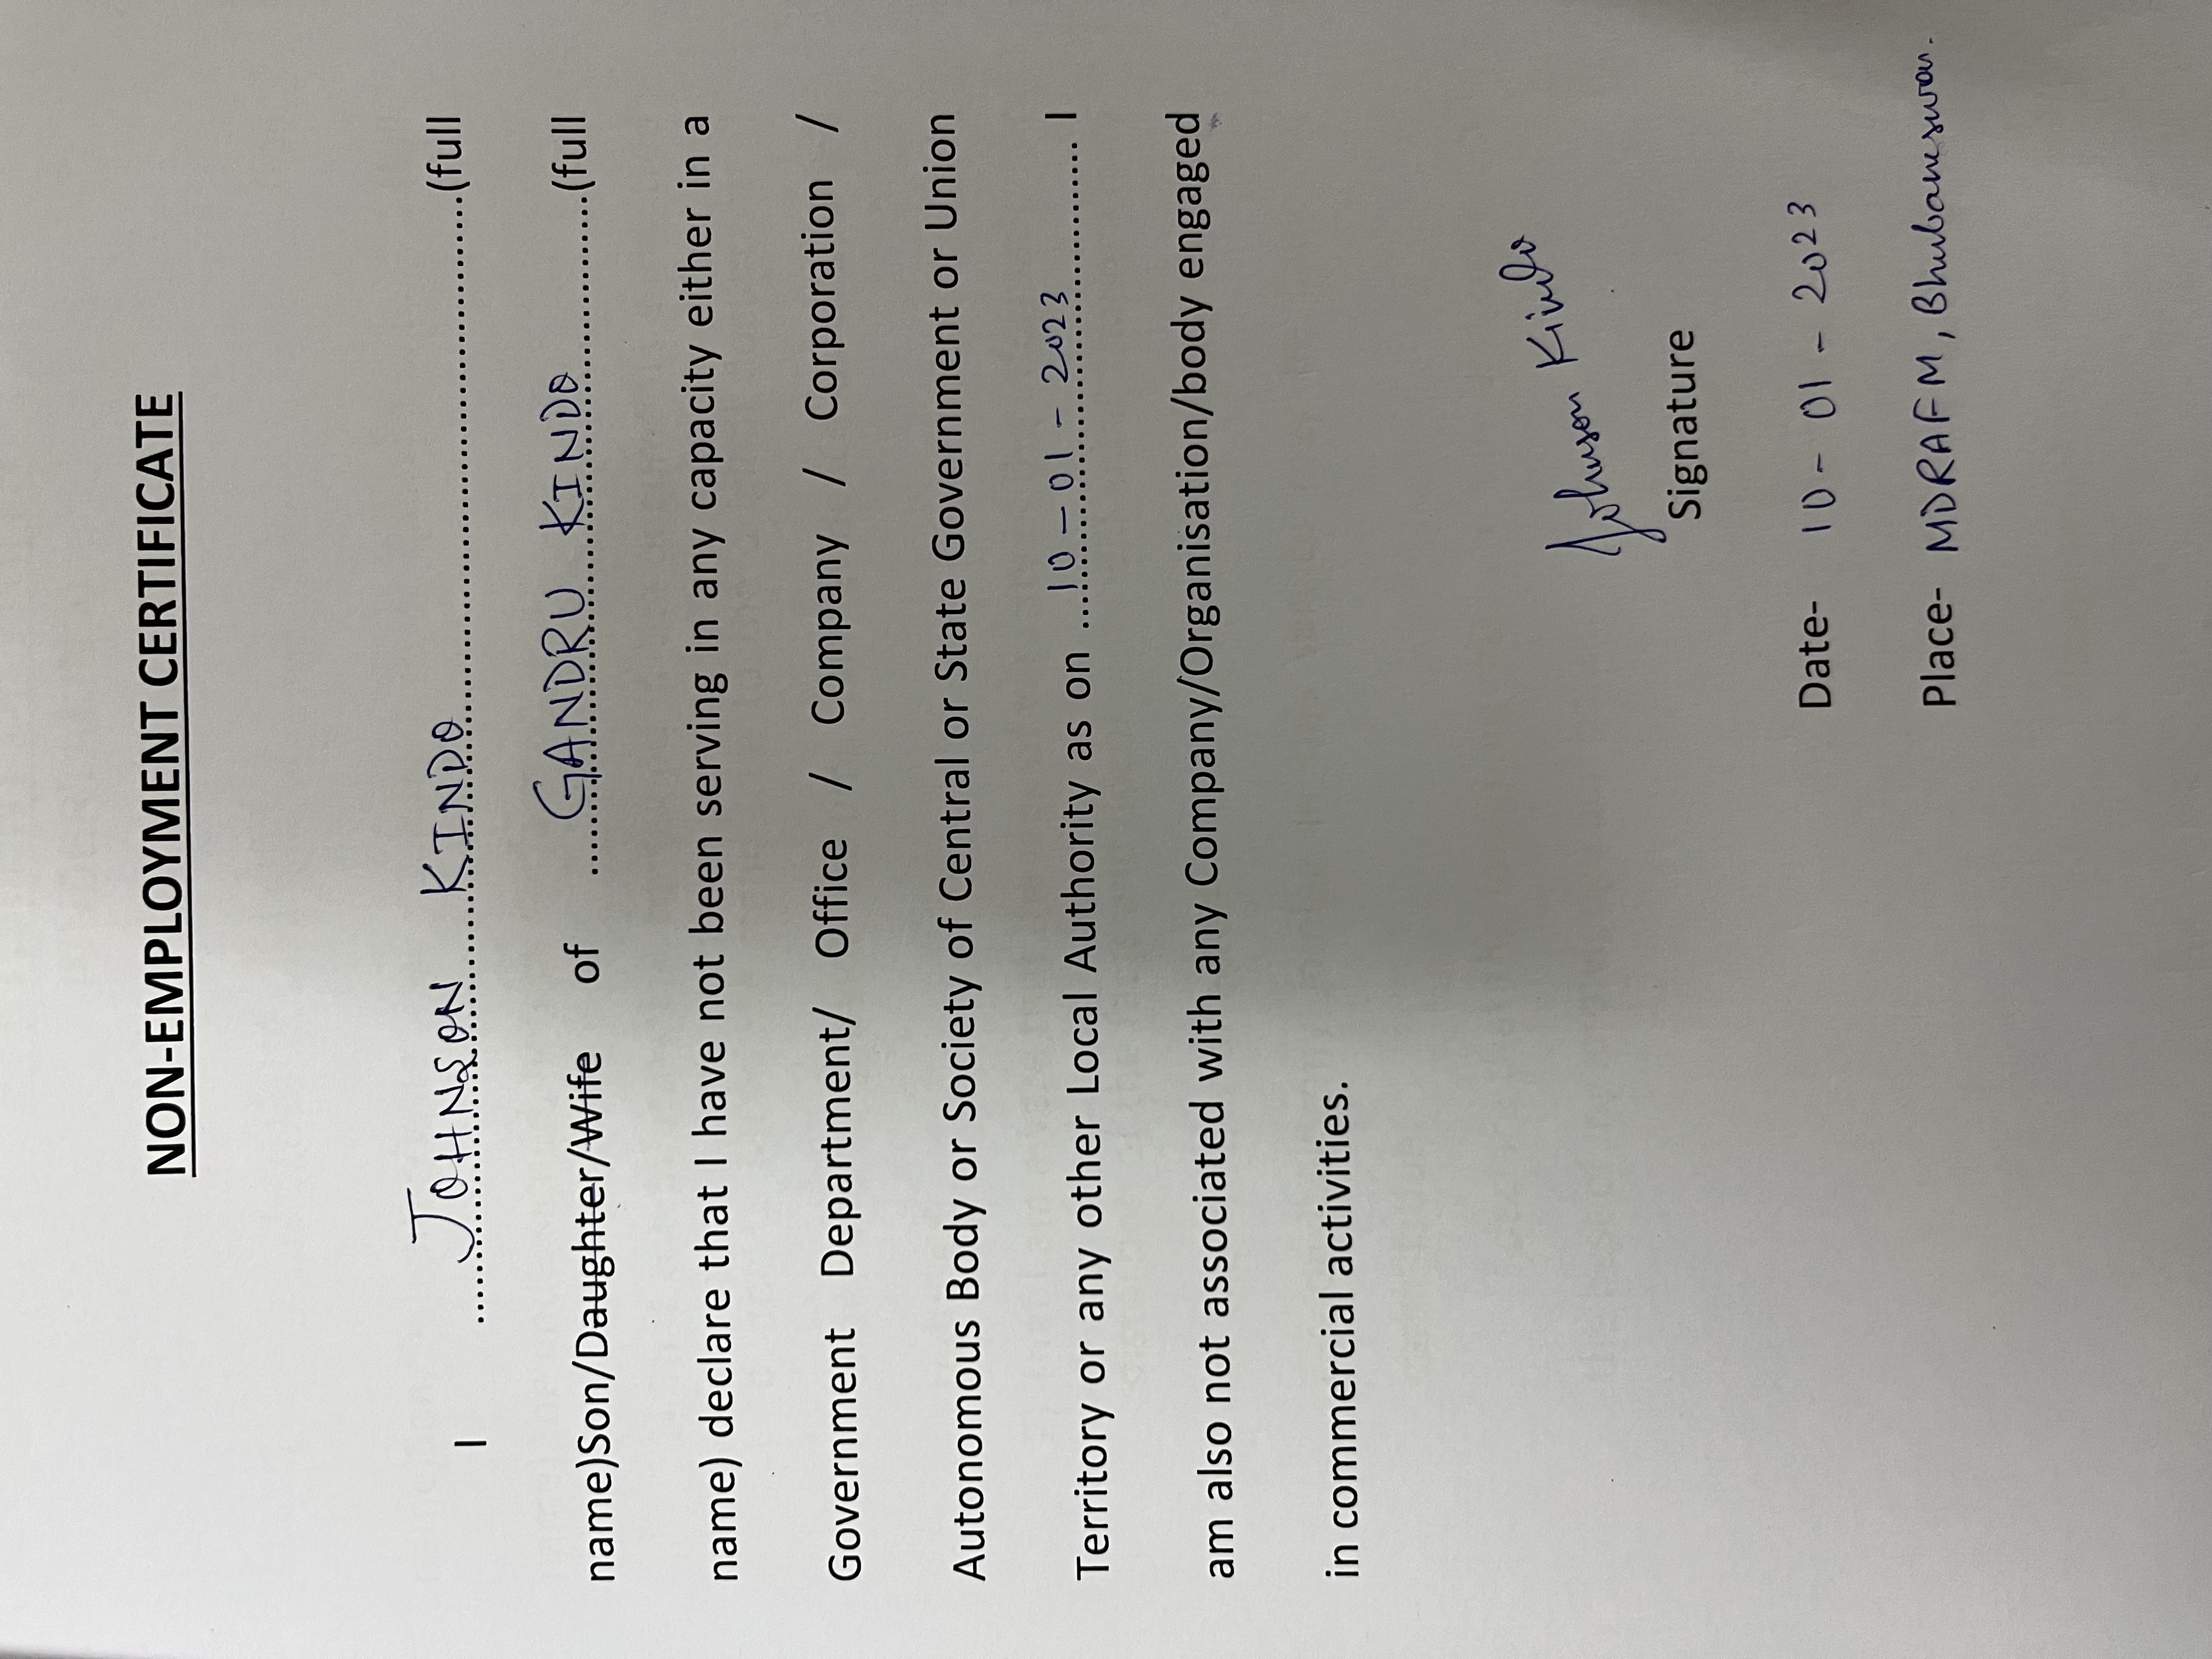 NON-EMPLOYMENT CERTIFICATE
I ...JOHNSON KINDO...(full
name)Son/Daughter/Wife of ...GANDRU KINDO...(full
name) declare that I have not been serving in any capacity either in a
Government Department/ Office / Company / Corporation /
Autonomous Body or Society of Central or State Government or Union
Territory or any other Local Authority as on ...10-01-2023... I
am also not associated with any Company/Organisation/body engaged
in commercial activities.
Johnson Kindo
Signature
Date- 10-01-2023
Place- MDRAFM, Bhubaneswar.